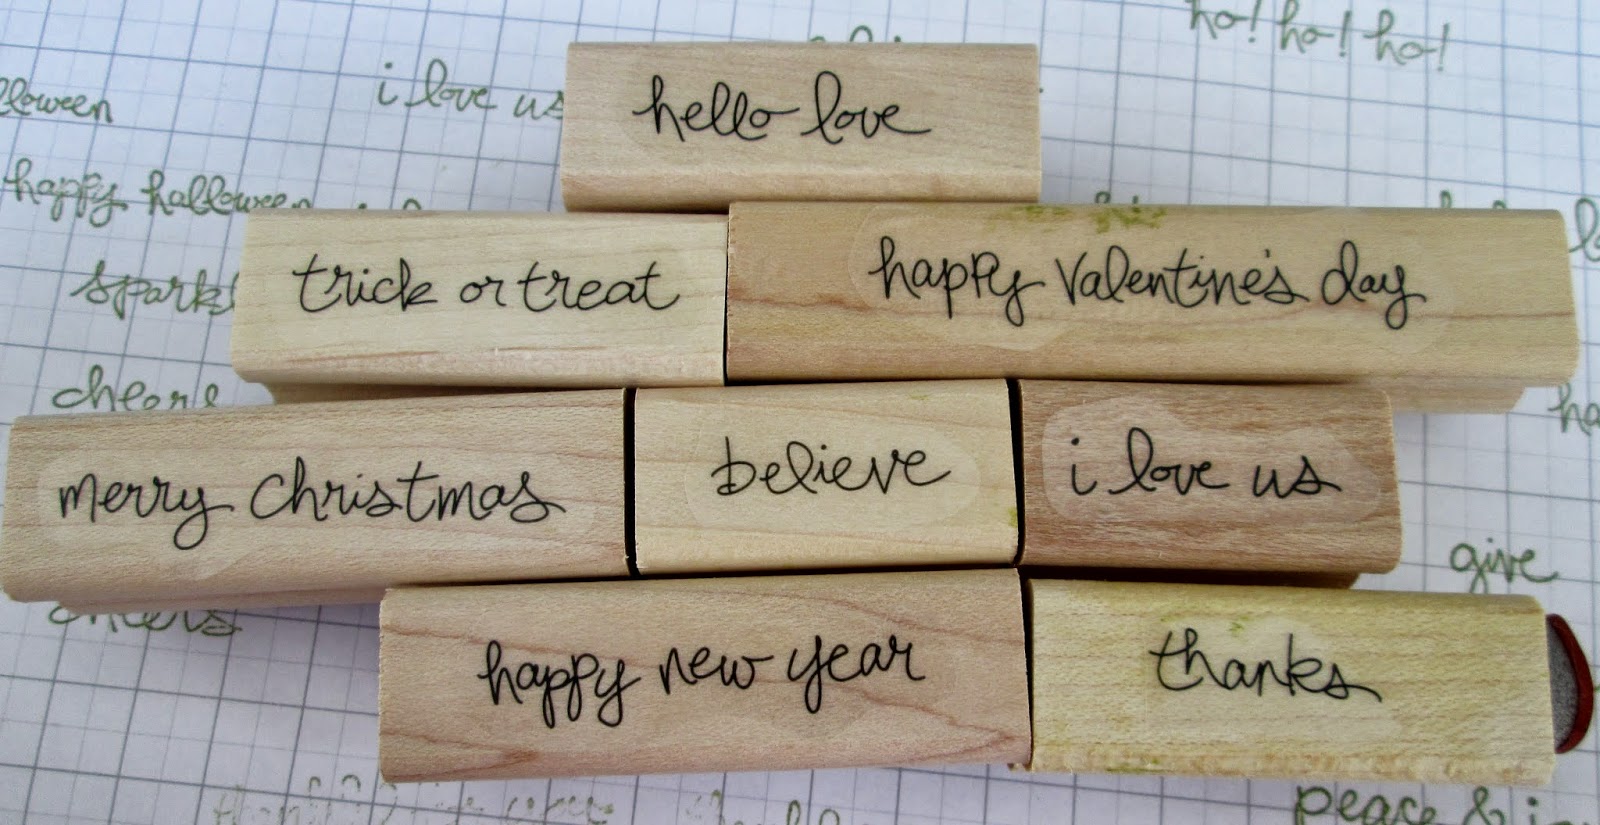 ho! ho! ho!
i love us
hello love
happy halloween
trick or treat
happy Valentine's day
cheers
merry Christmas
believe
i love us
give
cheers
happy new year
thanks
peace &